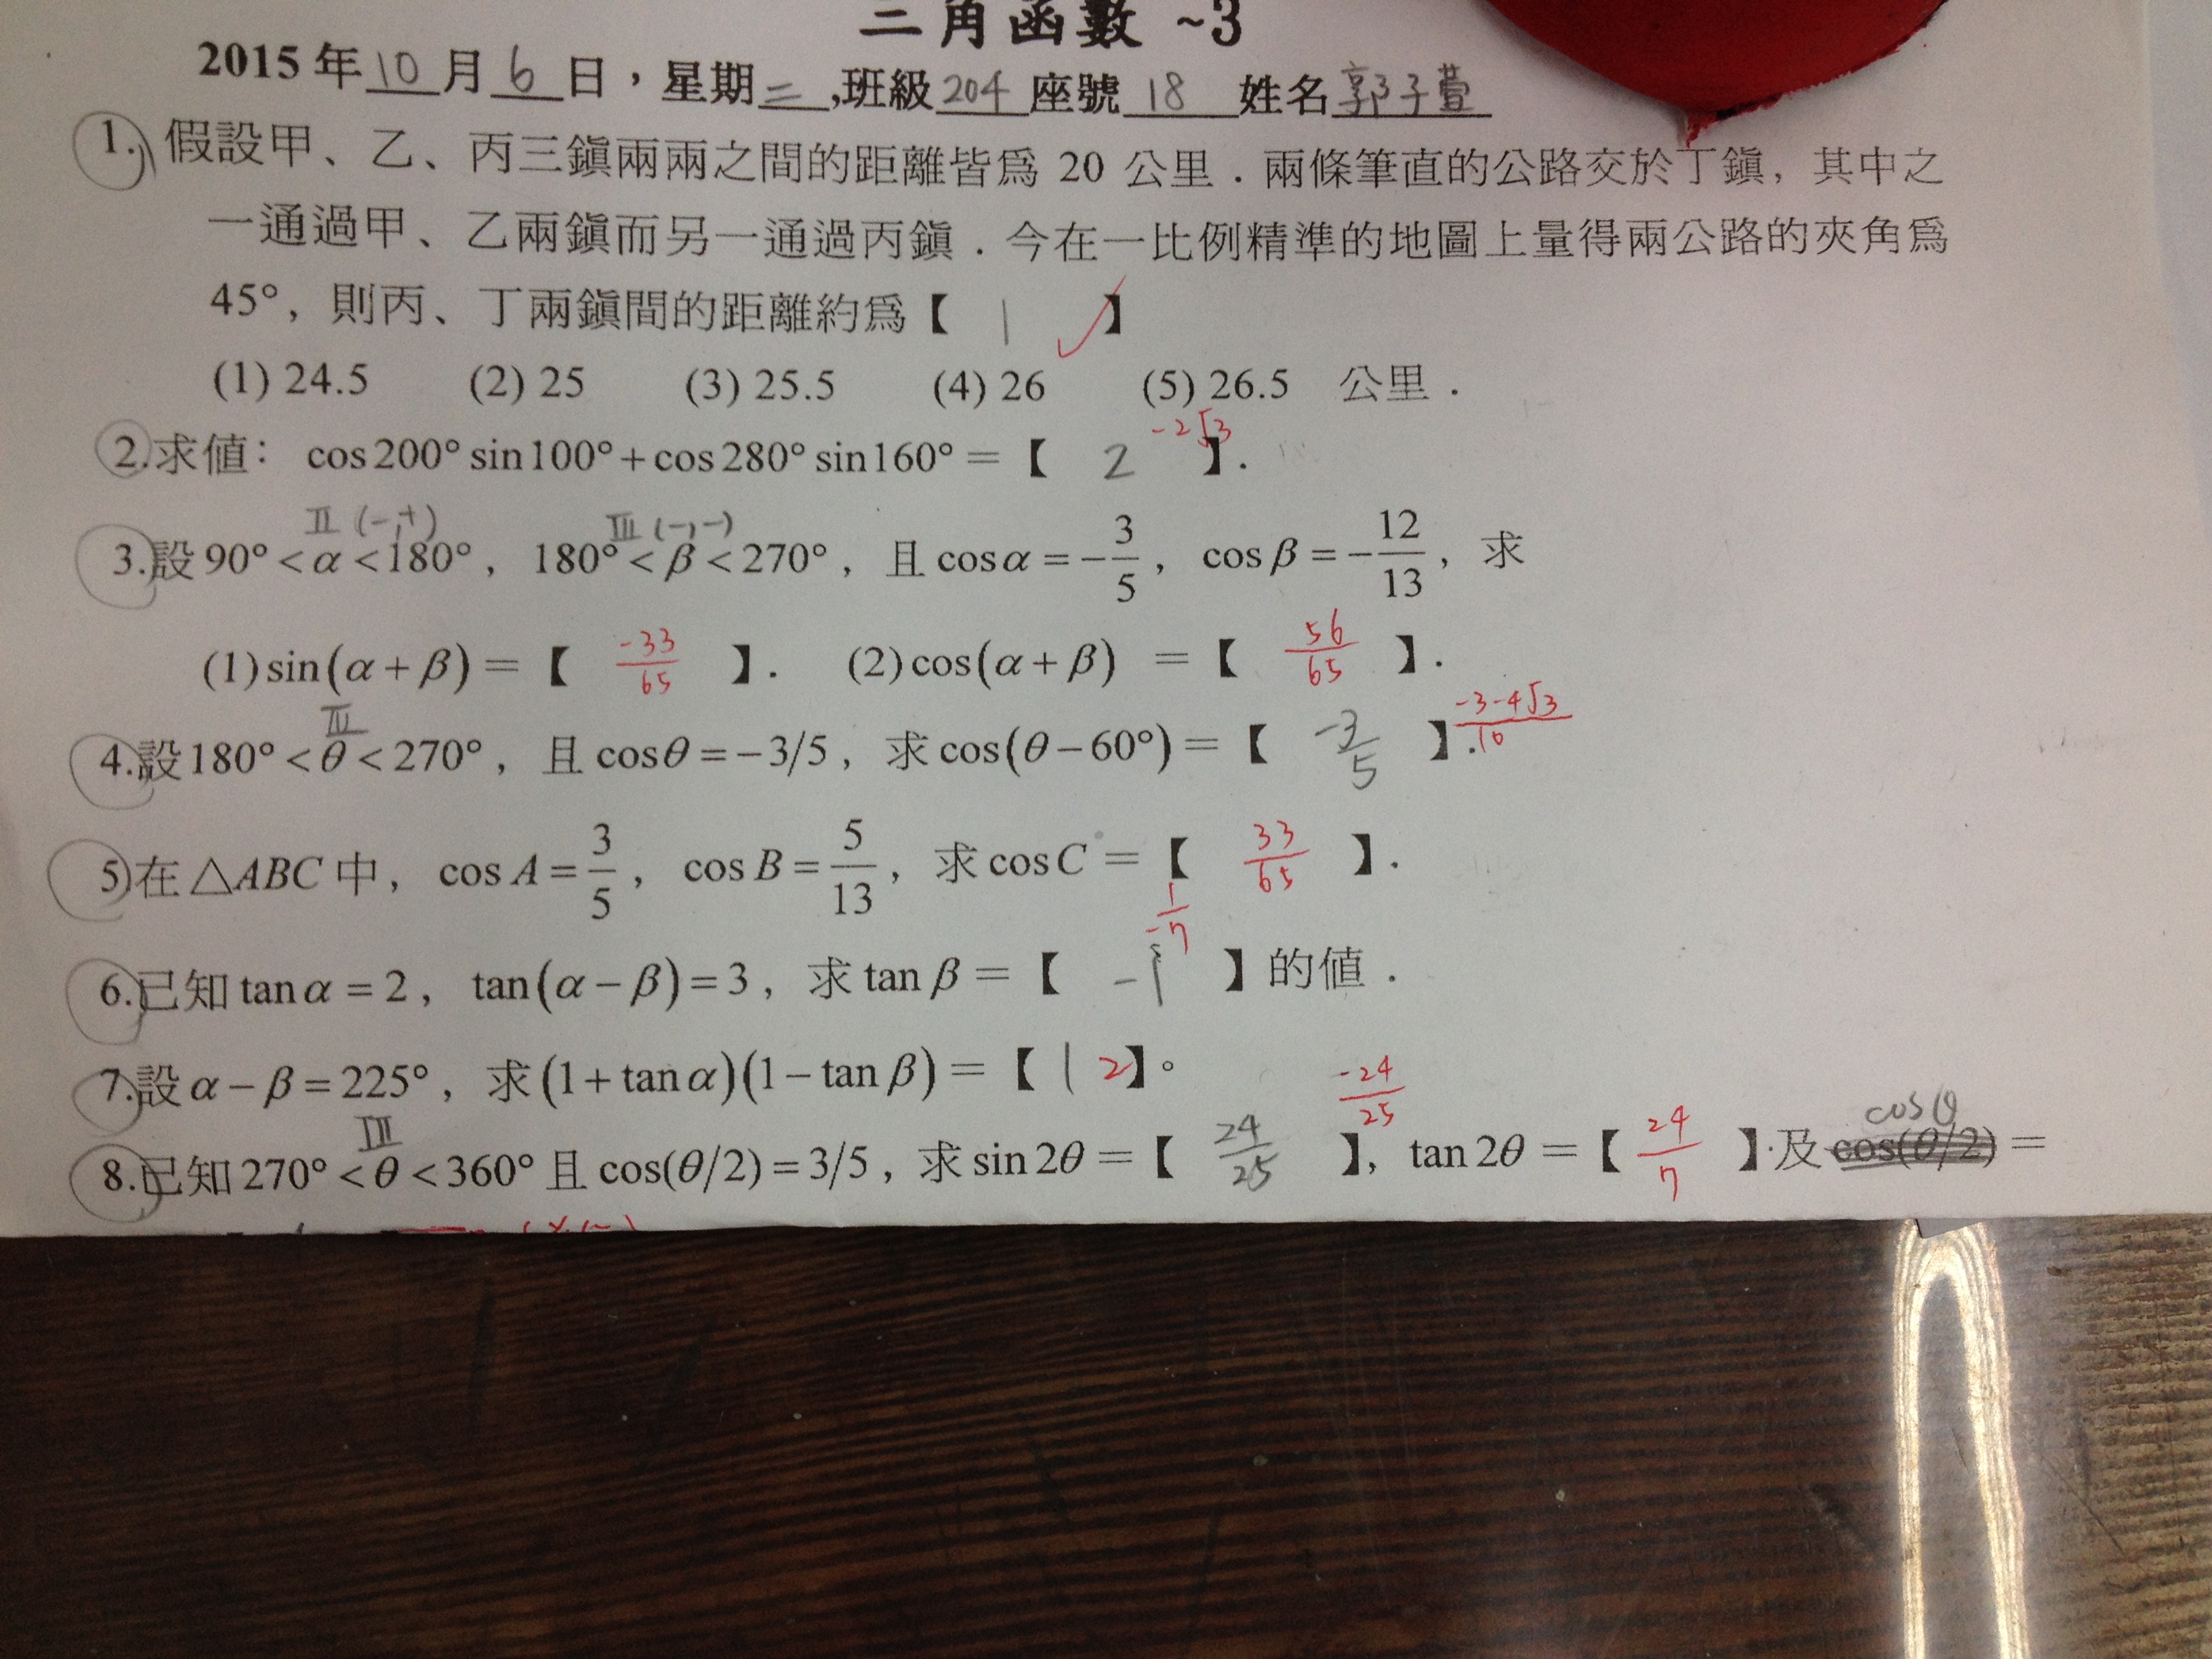 三角函數 ~3
2015 年 10 月 6 日，星期二,班級 204 座號 18 姓名 郭子萱
1. 假設甲、乙、丙三鎮兩兩之間的距離皆為 20 公里．兩條筆直的公路交於丁鎮，其中之
一通過甲、乙兩鎮而另一通過丙鎮．今在一比例精準的地圖上量得兩公路的夾角為
45°，則丙、丁兩鎮間的距離約為【 1 】
(1) 24.5 (2) 25 (3) 25.5 (4) 26 (5) 26.5 公里．
-2√3
2.求值： cos200° sin100°+cos280° sin160°＝【 2 】.
II (-,+) III (-,-)
3.設 90°<α<180°，180°<β<270°，且 cosα=-3/5，cosβ=-12/13，求
(1)sin(α+β)＝【 -33/65 】. (2)cos(α+β) ＝【 56/65 】.
III
4.設180°<θ<270°，且 cosθ=-3/5，求 cos(θ-60°)＝【 -3/5 】. -3-4√3/10
5)在 △ABC 中，cos A=3/5，cos B=5/13，求 cos C＝【 33/65 】.
1/-7
6.已知 tanα=2，tan(α-β)=3，求 tan β＝【 -1 】的值．
7.設 α-β=225°，求(1+tanα)(1-tanβ)＝【 1 2】。
III -24/25 cosθ
8.已知 270°<θ<360° 且 cos(θ/2)=3/5，求 sin 2θ＝【 24/25 】，tan 2θ＝【 24/7 】.及 cos(θ/2)＝